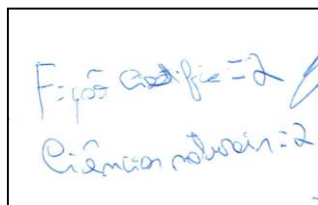 Ficção Científic = 2
Ciências naturais = 2